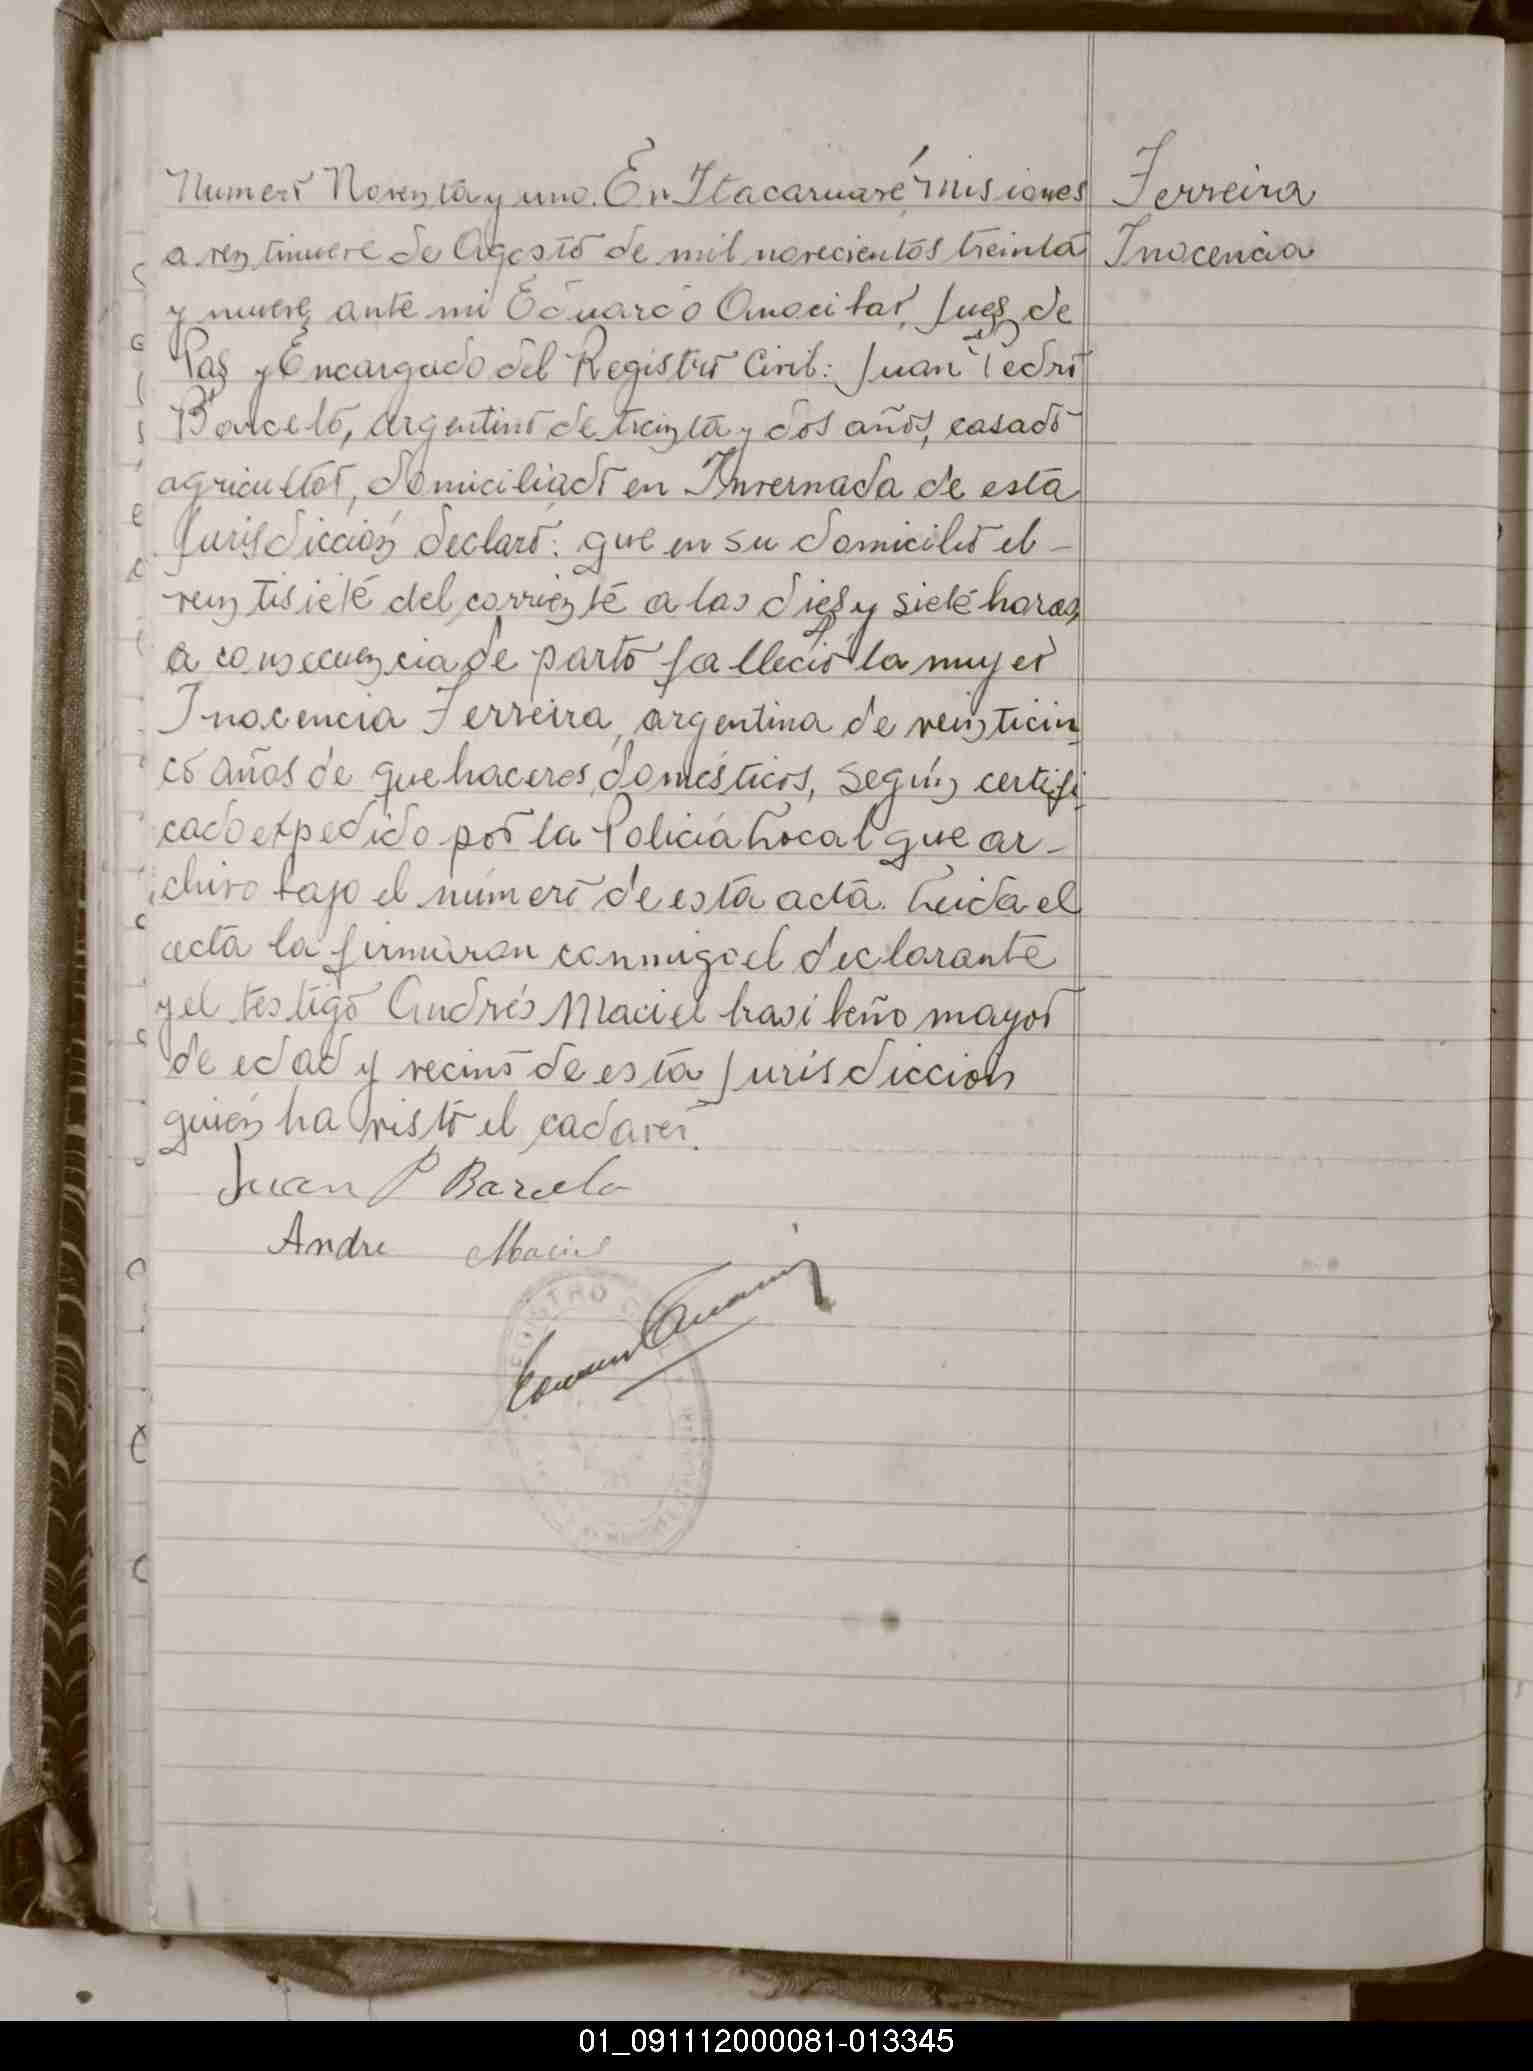 Numero Noventa y uno. En Itacaruaré, Misiones
a veintinueve de Agosto de mil novecientos treinta
y nueve, ante mi Eduardo Juez de
Paz y Encargado del Registro Civil: Juan Pedro
Barcelo, argentino de treinta y dos años, casado
agricultor, domiciliado en Invernada de esta
Jurisdicción declaró: que en su domicilio el -
veintisiete del corriente a las diez y siete horas,
a consecuencia de parto falleció la mujer
Inocencia Ferreira, argentina de veinticin
co años de quehaceres domésticos, según certifi
cado expedido por la Policia Local que ar-
chivo bajo el número de esta acta. Leida el
acta la firmaron conmigo el declarante
y el testigo Andrés Maciel brasileño mayor
de edad y vecino de esta Jurisdicción
quién ha visto el cadaver.
Juan P Barcelo
Andre
Ferreira
Inocencia
01_091112000081-013345